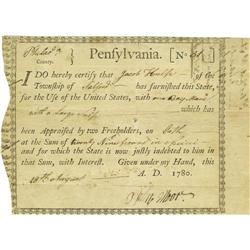 Pensylvania. [No
County.
I DO hereby certify that Jacob Hulfe of the
Township of Salford has furnished this State,
for the Use of the United States, with one Bay Mare
with a large
been appraised by two Freeholders, on Oath
at the Sum of twenty Nine pounds in specie
and for which the State is now justly indebted to him in
that Sum, with Interest. Given under my Hand, this
28th August A. D. 1780.